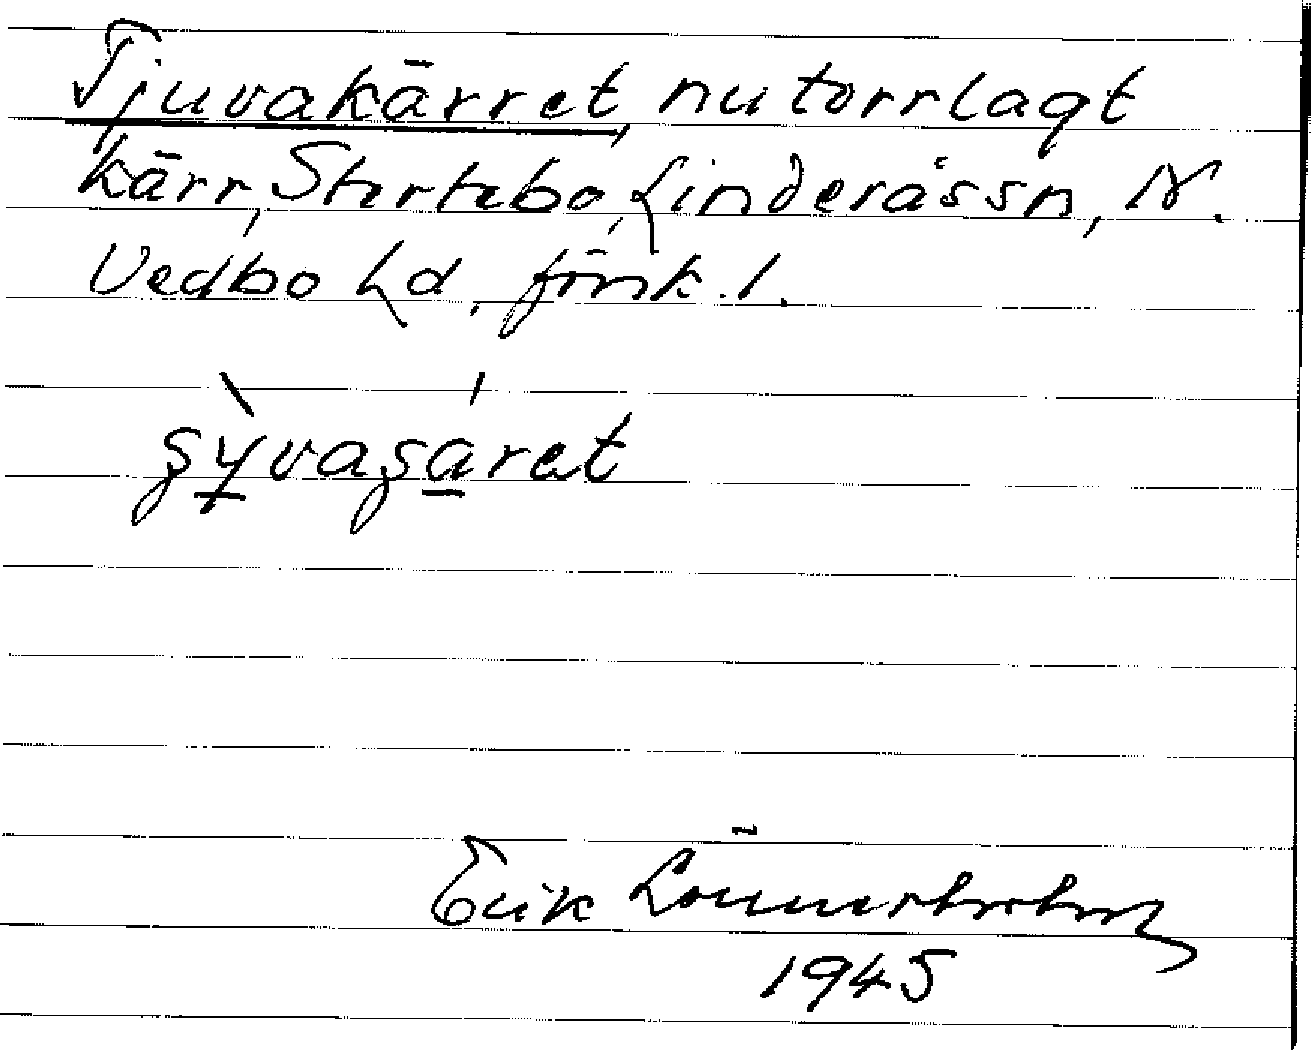 Tjuvakärret, nu torrlagt
kärr, Stertebo, Linderås sn, N.
Vedbo hd, Jönk. l.
şỳvaşáret
Erik Lönnerholm
1945